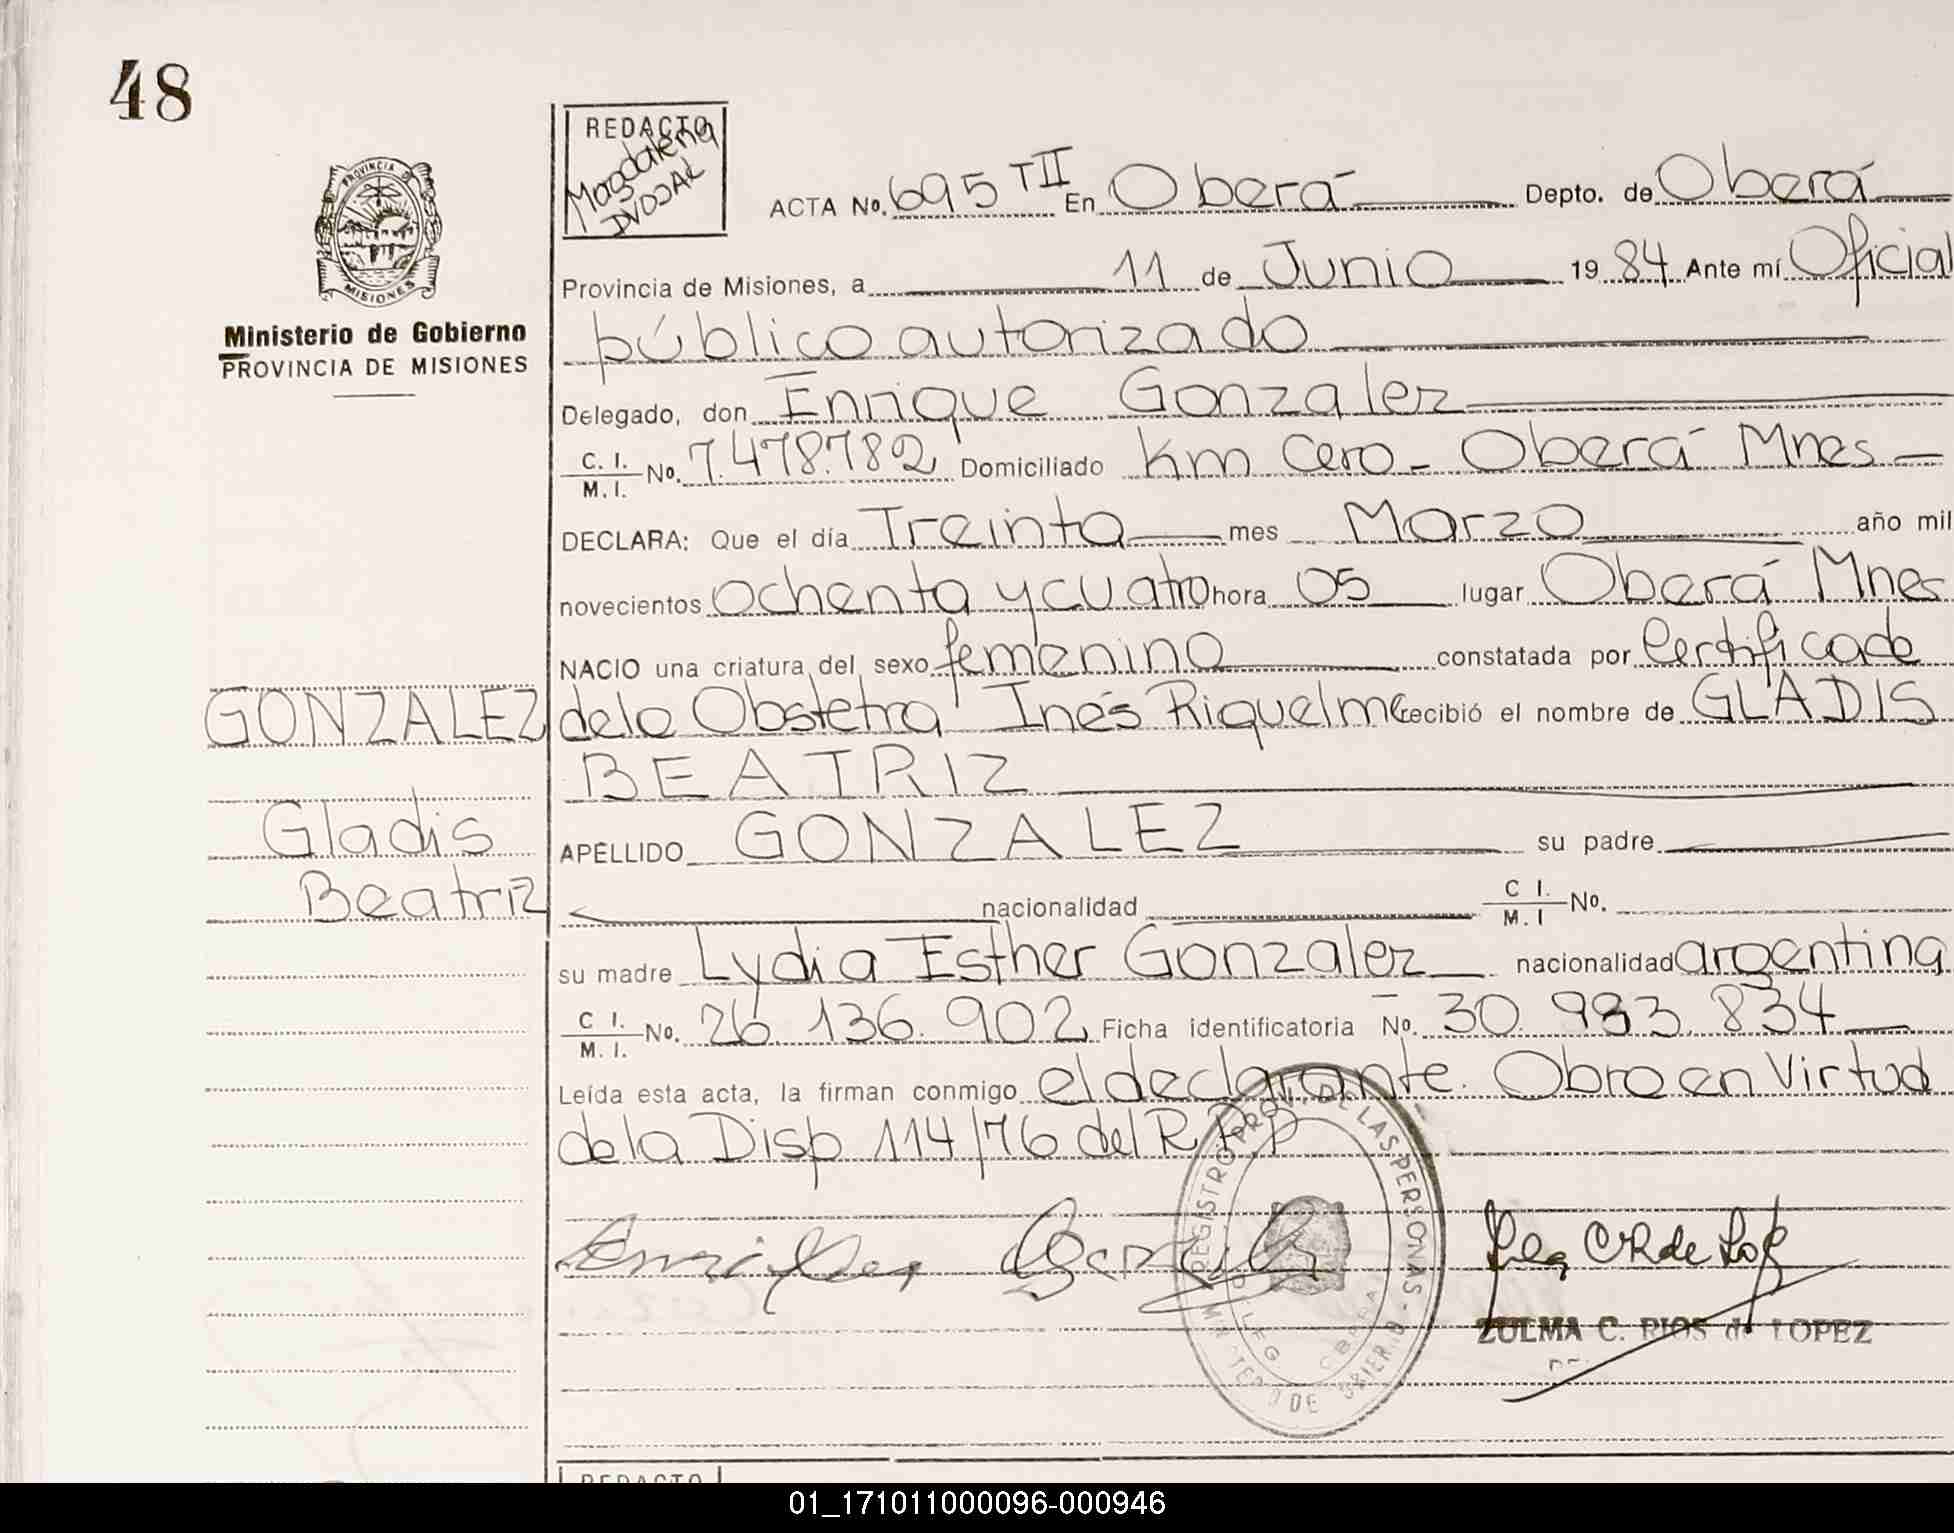 48
REDACTO
Magdalena
DVOJAK
PROVINCIA DE
MISIONES
Ministerio de Gobierno
PROVINCIA DE MISIONES
ACTA No. 695 TII En Oberá Depto. de Oberá
Provincia de Misiones, a 11 de Junio 19 84 Ante mí Oficial
público autorizado
Delegado, don Enrique Gonzalez
C. I. / M. I. No. 7.478.782 Domiciliado Km Cero - Oberá Mnes
DECLARA: Que el día Treinta mes Marzo año mil
novecientos ochenta y cuatro hora 05 lugar Oberá Mnes
NACIO una criatura del sexo femenino constatada por Certificado
GONZALEZ
de la Obstetra Inés Riquelme recibió el nombre de GLADIS
BEATRIZ
Gladis
APELLIDO GONZALEZ su padre
Beatriz
nacionalidad C I. / M. I No.
su madre Lydia Esther Gonzalez nacionalidad argentina
C I. / M. I. No. 26.136.902 Ficha identificatoria No. 30.983.834
Leída esta acta, la firman conmigo el declarante. Obro en Virtud
de la Disp 114/76 del R.P.P
REGISTRO PROV. DE LAS PERSONAS
ZULMA C. RIOS de LOPEZ
REDACTO
01_171011000096-000946